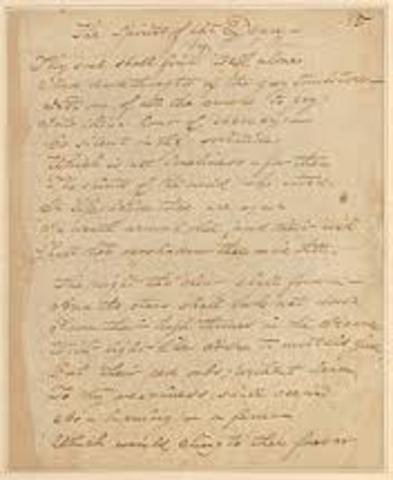 The Spirits of the Dead
Thy soul shall find itself alone
dark thoughts of the gray tombstone
Not one of all the crowd to pry
Into thine hour of secrecy
Be silent in that solitude
Which is not loneliness for then
The spirits of the dead who stood
In life before thee are again
In death around thee, and their will
Shall overshadow thee be still
The night tho' clear shall frown
And the stars shall look not down
From their high thrones in the
With light like to mortals given
But their red orbs, without beam,
To thy weariness shall seem
As a burning and a fever
Which would cling to thee forever